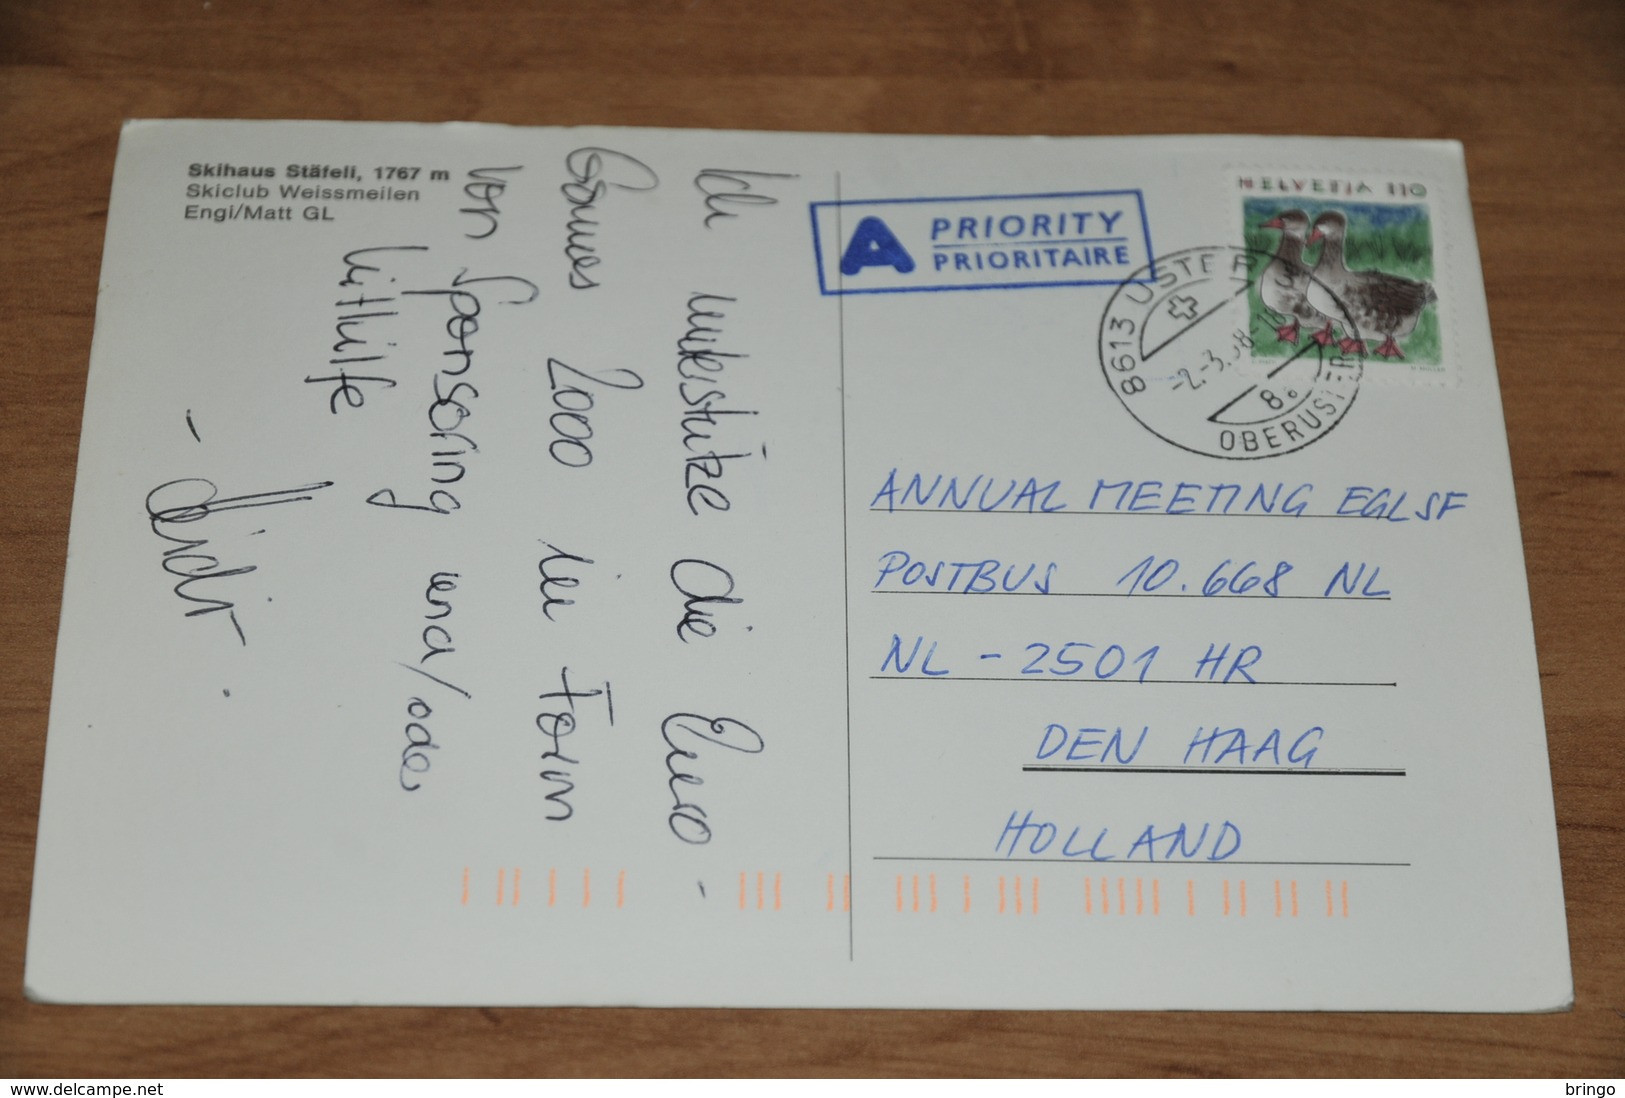 Skihaus Stäfeli, 1767 m
Skiclub Weissmeilen
Engi/Matt GL
Ich unterstütze die Euro-
Games 2000 in Form
von Sponsoring und/oder
Mithilfe
A PRIORITY
PRIORITAIRE
HELVETIA 110
8613 USTER
-2.-3.98-18
8a
OBERUSTER
ANNUAL MEETING EGLSF
POSTBUS 10.668 NL
NL - 2501 HR
DEN HAAG
HOLLAND
www.delcampe.net
bringo